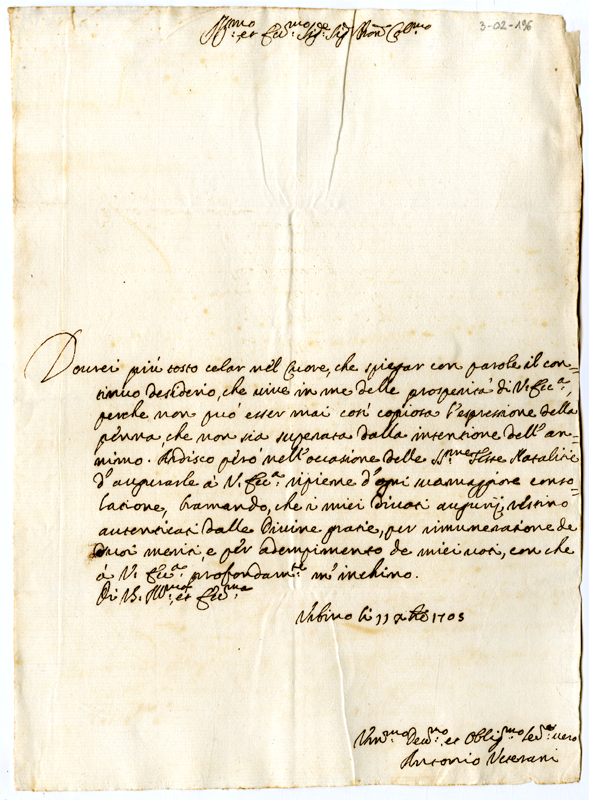 Ill:mo et Ecc:mo Sig:re Sig:r Pron Col:mo
3-02-196
Dovrei più tosto celar nel Cuore, che spiegar con parole il con=
tinuo desiderio, che vive in me delle prosperità di V. Ecc:a,
perche non può esser mai così copiosa l'espressione della
penna, che non sia superata dalla intentione dell'an=
nimo. Ardisco però nell'occasione delle SS:me Feste Natalitie
d'augurarle à V. Ecc:a ripiene d'ogni sua maggiore conso=
latione, bramando, che i miei divoti augurij restino
autenticati dalle Divine gratie, per rimuneratione de
suoi meriti, e per adempimento de miei voti, con che
à V. Ecc:a profondam:te m'inchino.
Di V. Ill:ma et Ecc:ma
Urbino li 11 Xbre 1703
Um:mo Dev:mo et Oblig:mo Ser:e vero
Antonio Veterani